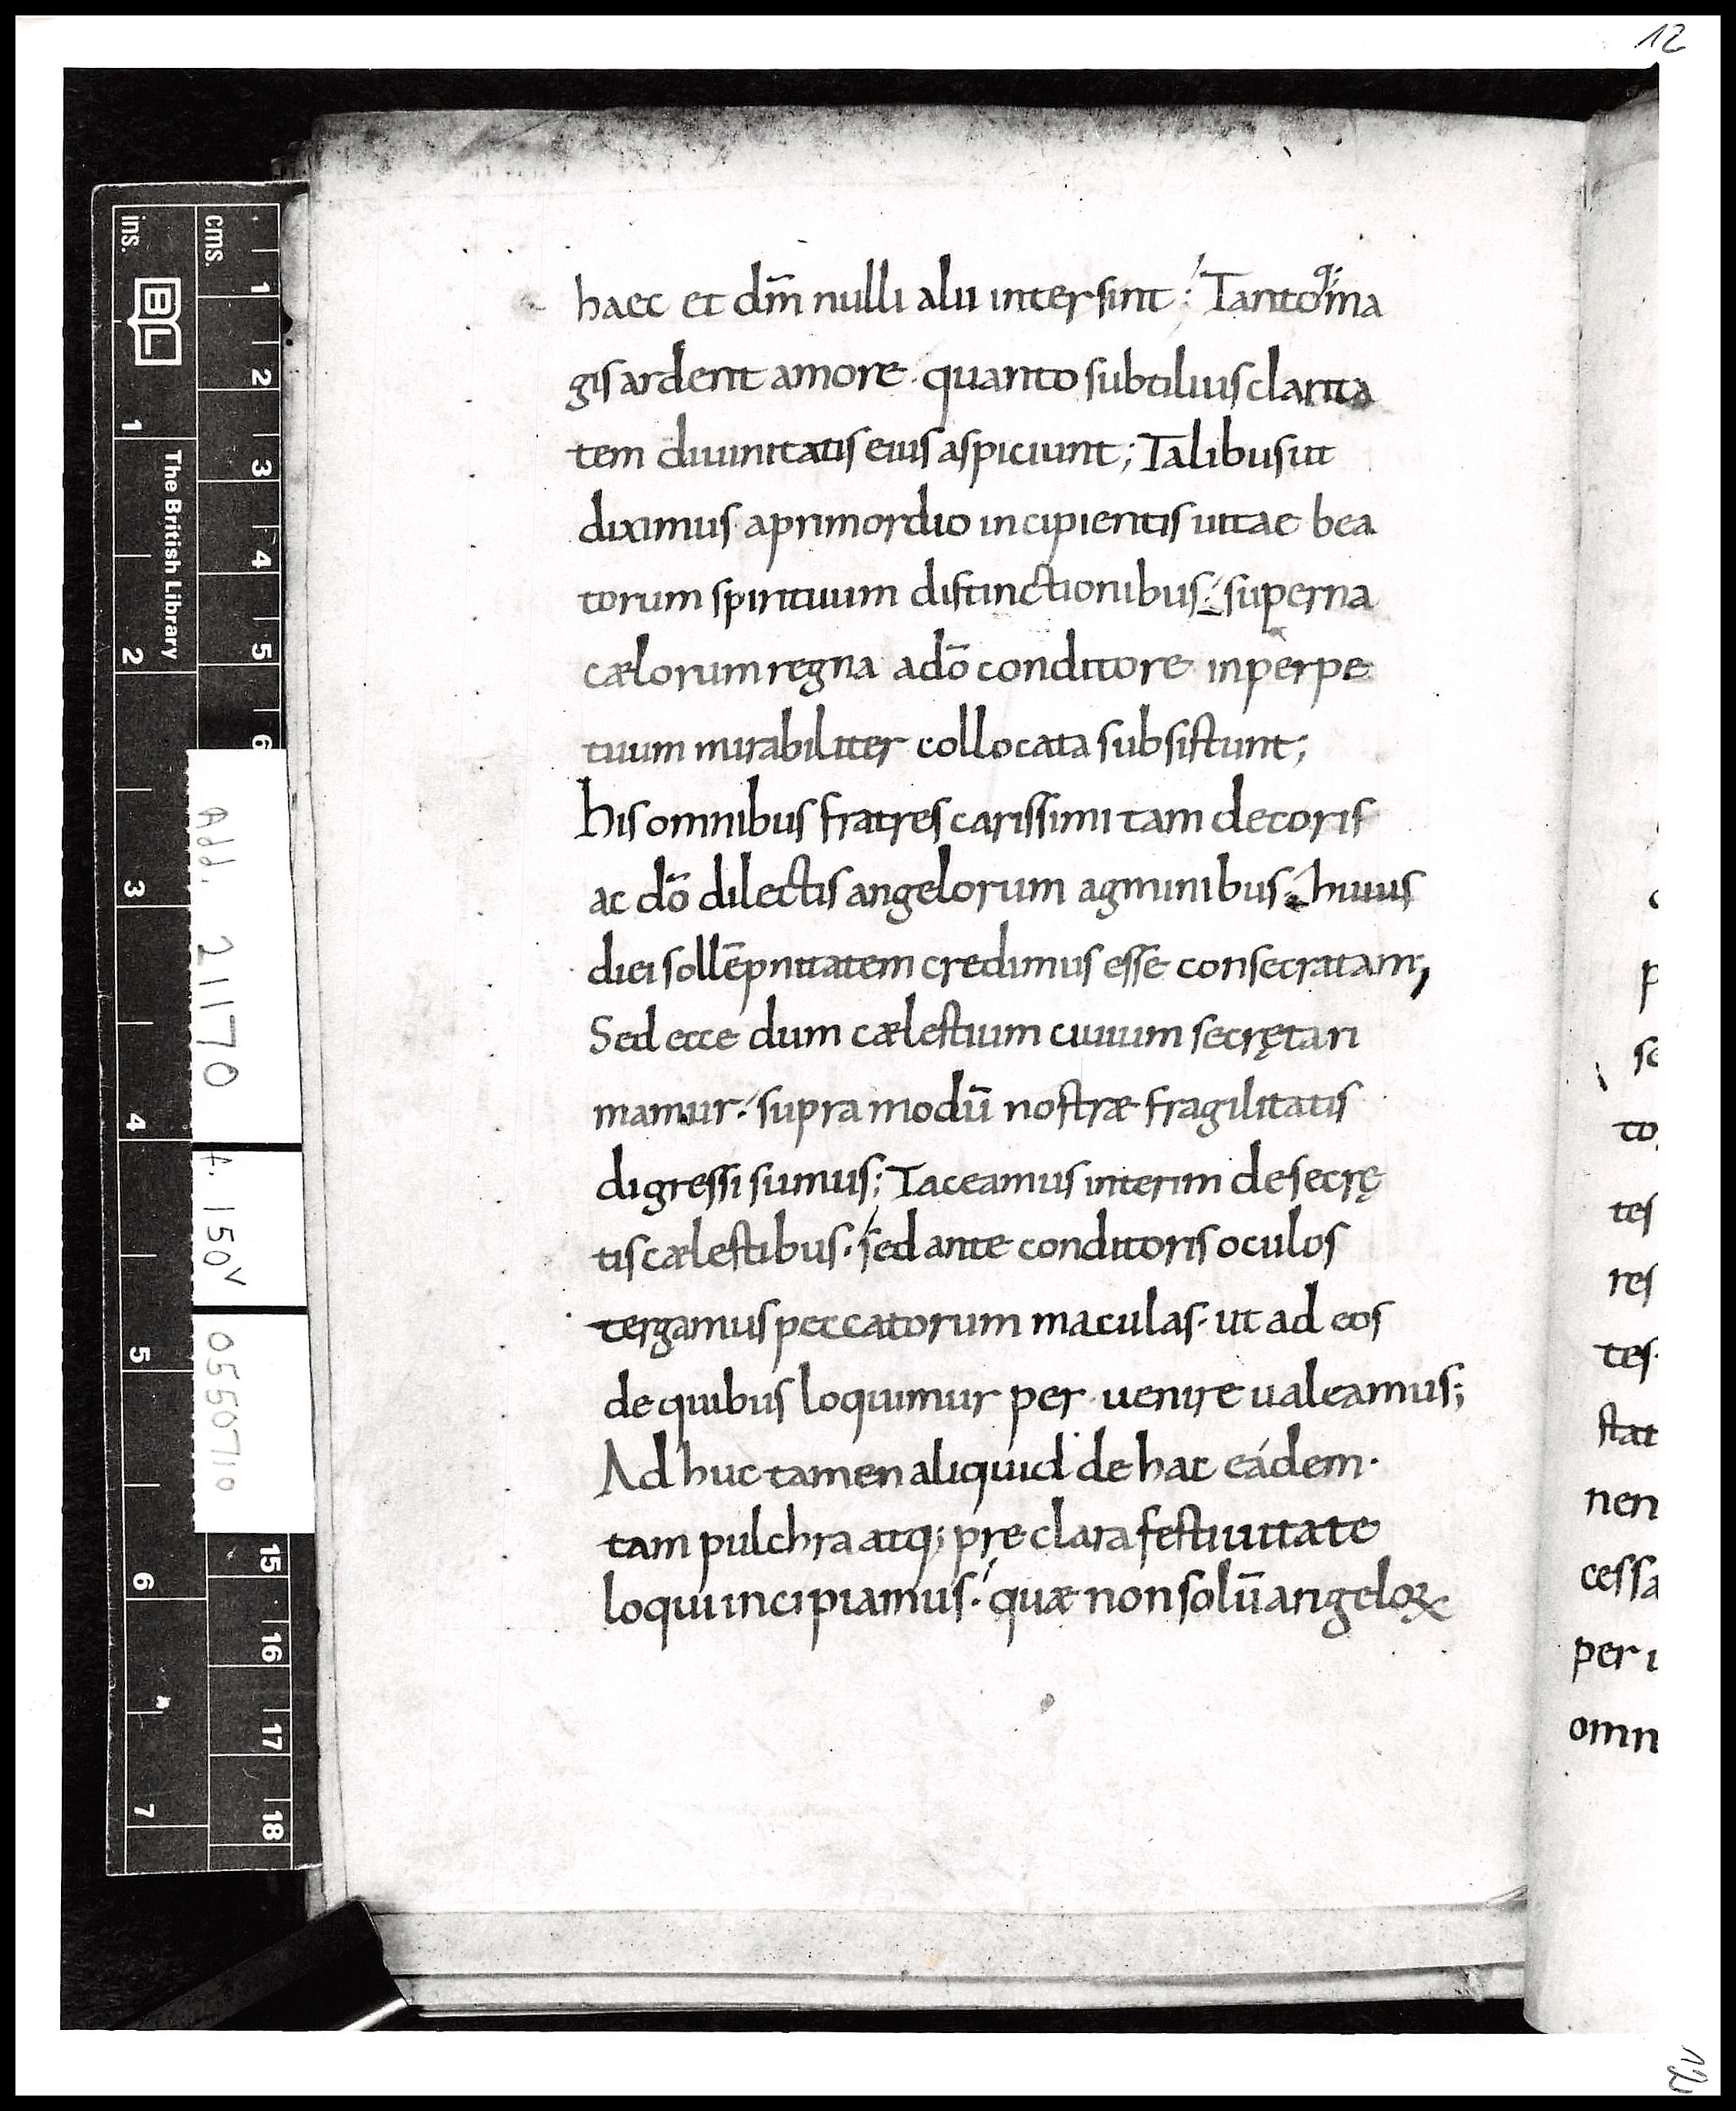 12
haec et dm̄ nulli alii intersint ; Tanto qi; ma
gis ardent amore · quanto subtilius clarita
tem diuinitatis eius aspiciunt ; Talibus ut
diximus aprimordio incipientis uitae bea
torum spirituum distinctionibus ; superna
cælorum regna a dō conditore inperpe
tuum mirabiliter collocata subsistunt ;
his omnibus fratres carissimi tam decoris
ac dō dilectis angelorum agminibus ; huius
diei sollēpnitatem credimus esse consecratam ,
Sed ecce dum cælestium ciuium secręta ri
mamur · supra modū nostræ fragilitatis
digressi sumus ; Taceamus interim de secrę
tis cælestibus · sed ante conditoris oculos
tergamus peccatorum maculas · ut ad eos
de quibus loquimur per uenire ualeamus ;
Ad huc tamen aliquid de hac eádem ·
tam pulchra atq; pre clara festiuitate
loqui incipiamus · quæ non solū angeloꝝ
p
se
to
tes
res
tes·
stat
nen
cessa
per i
omn
ins.
cms.
BL
The British Library
1
2
3
4
5
6
7
1
2
3
4
5
6
15
16
17
18
Add. 21170
f. 150v
0550710
12